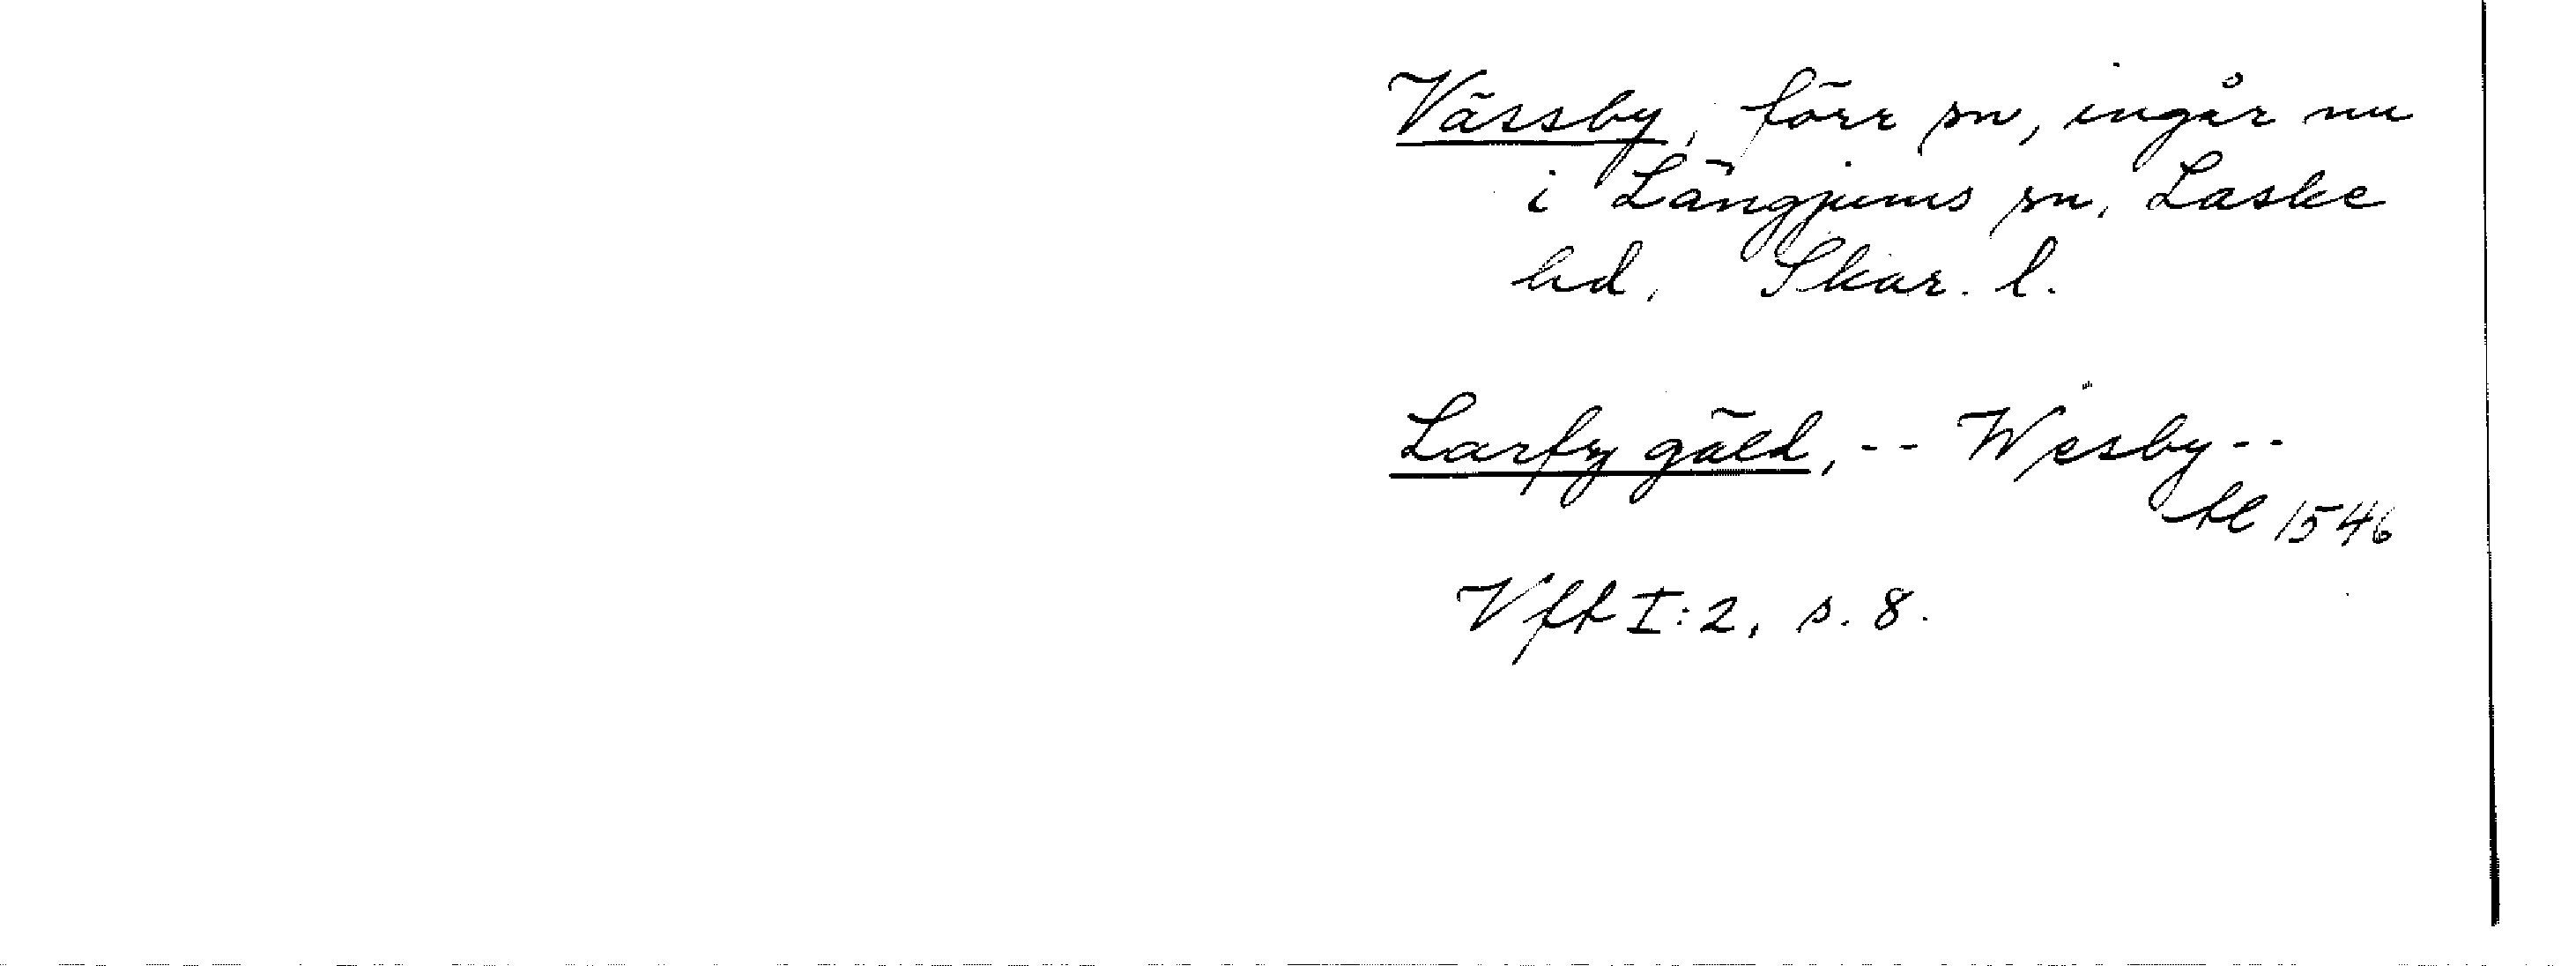 Vässby, förr sn, ingår nu
i Längjums sn, Laske
hd, Skar. l.
Larfz gäld, -- Wesby --
tl 1546
Vft I:2, s. 8.